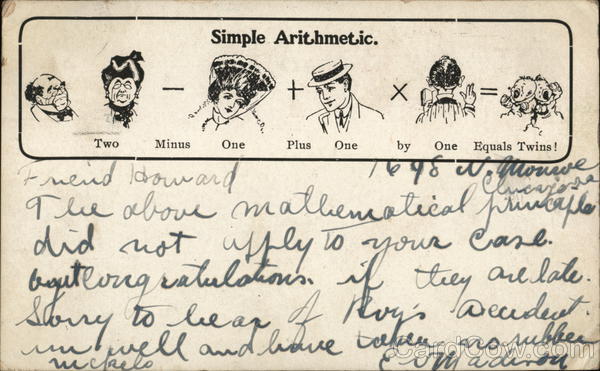 Simple Arithmetic.
− + × =
Two Minus One Plus One by One Equals Twins!
Friend Howard
N. Monroe
Chicago
The above mathematical principle
did not apply to your case.
but congratulations. if they are late.
Sorry to hear of Roy's accident.
im well and have taken no rubber
nickels
Madison
CardCow.com